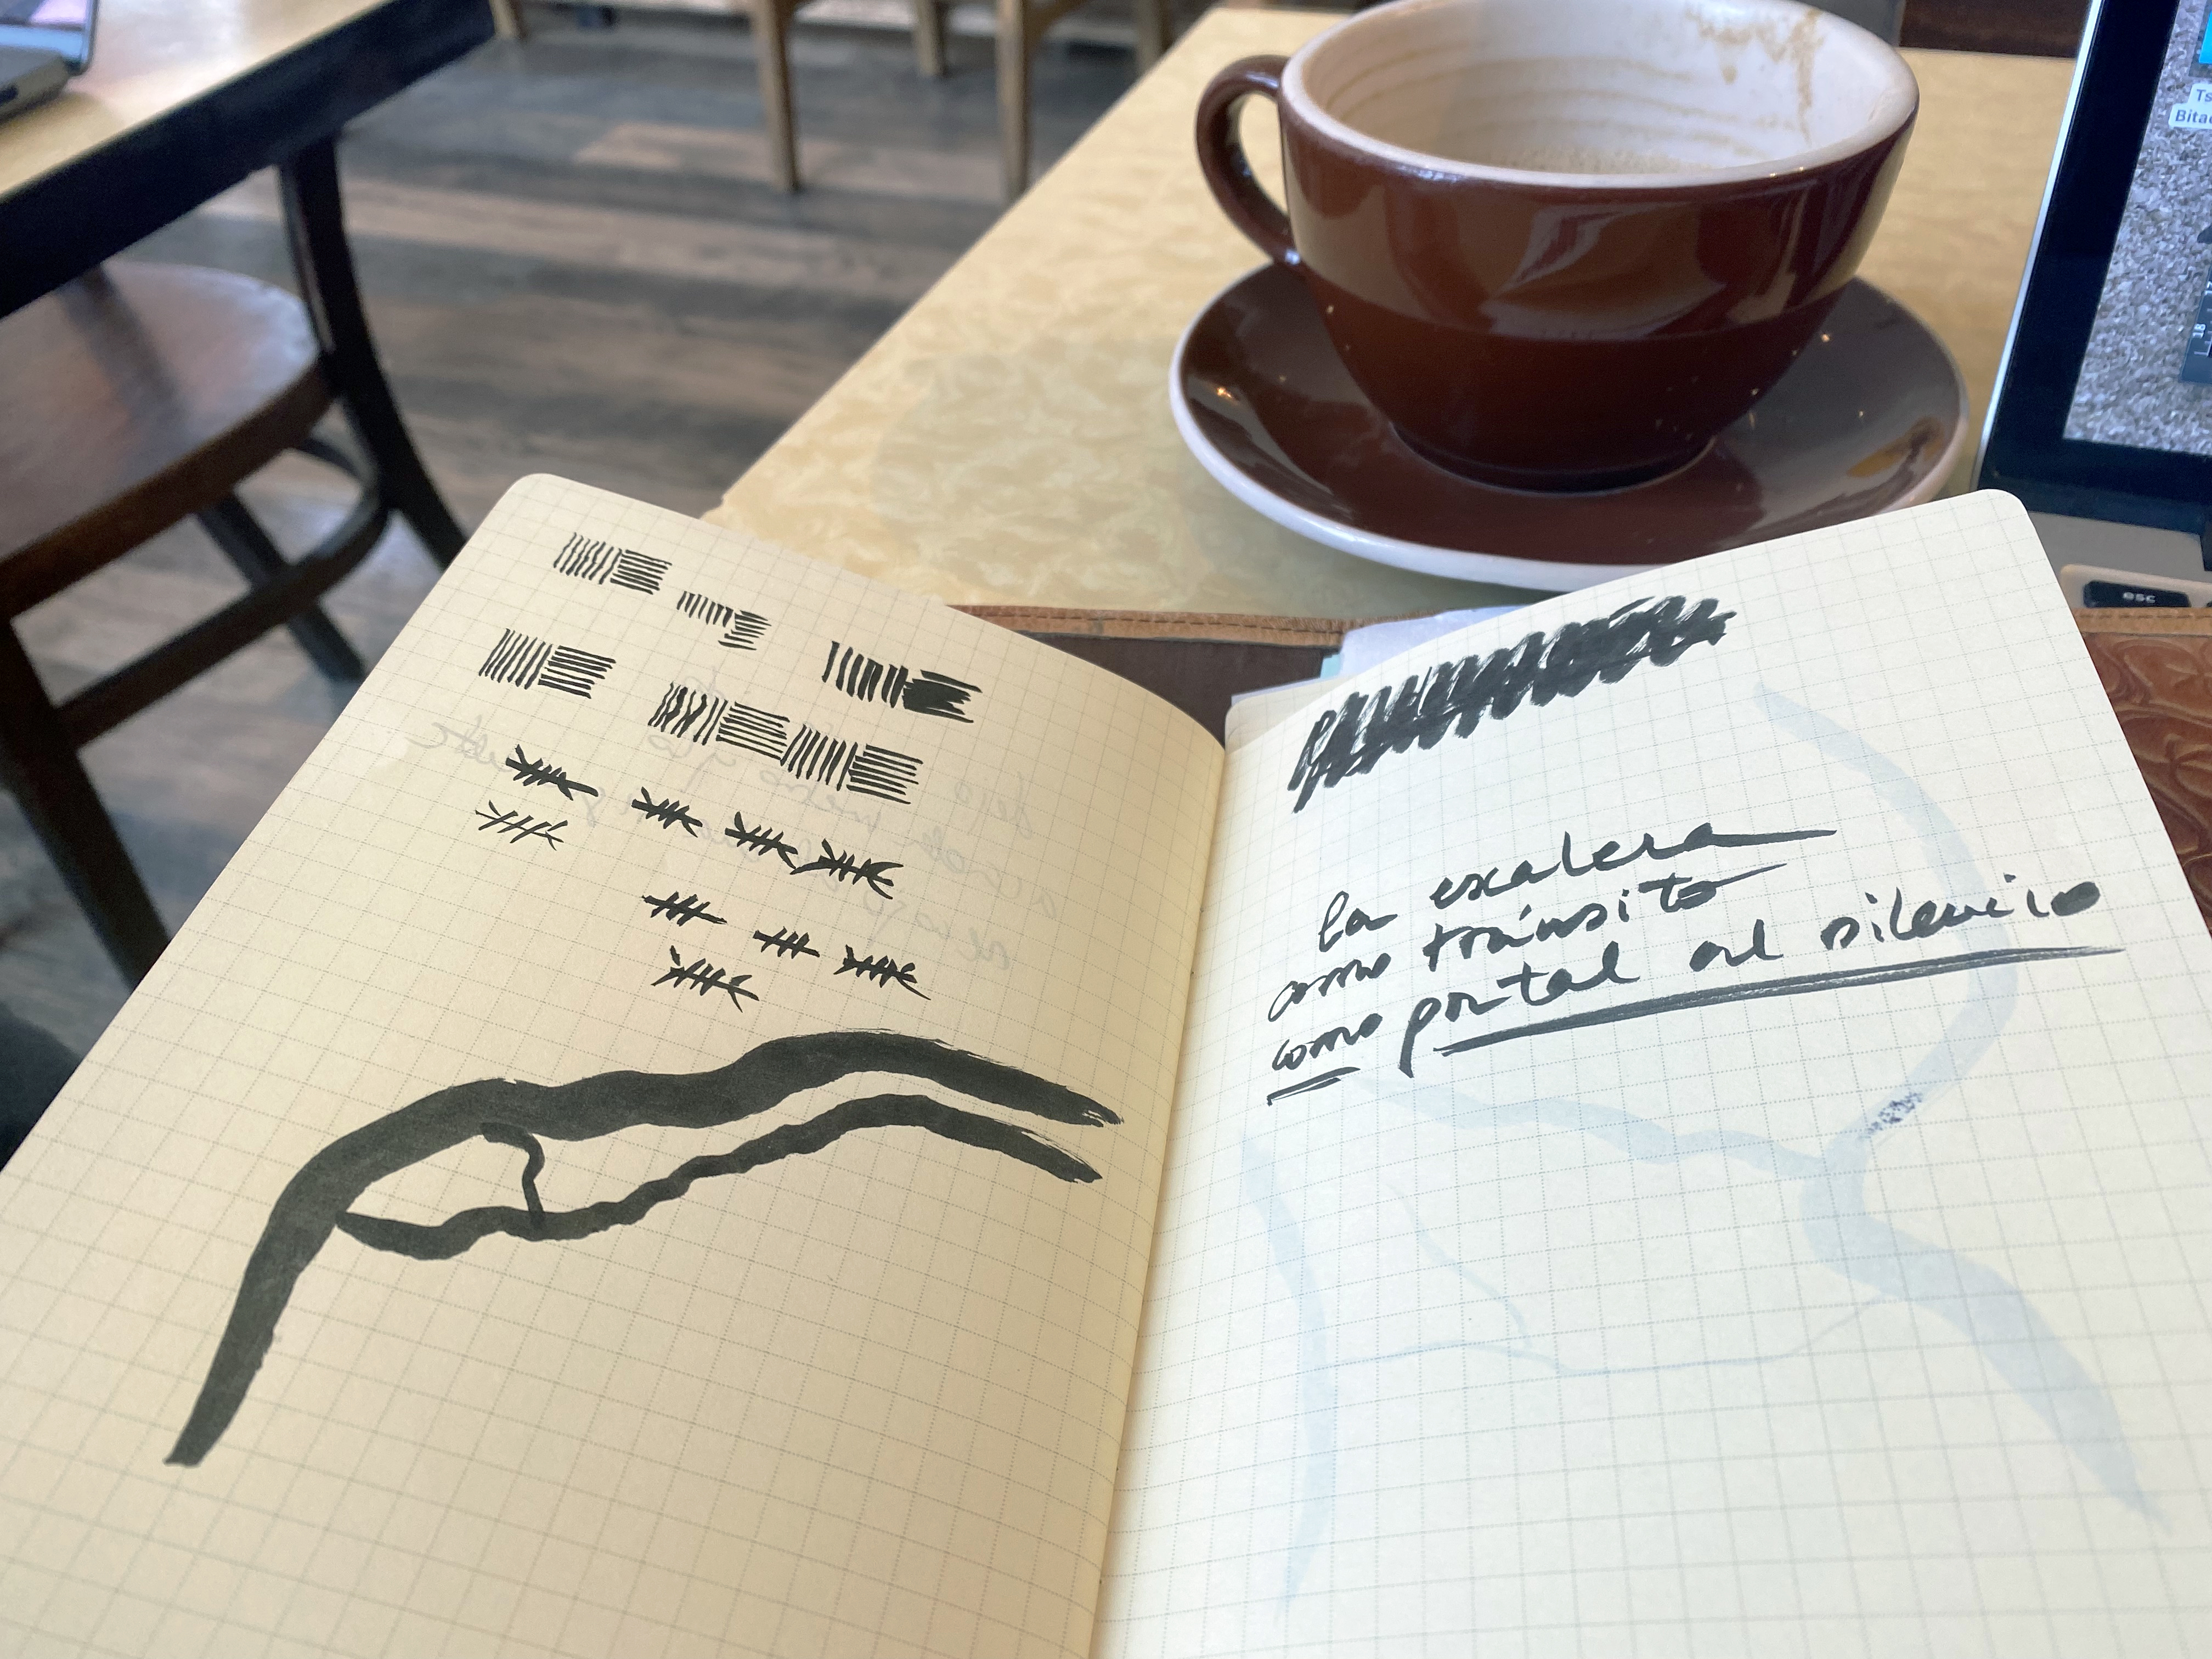 Ts
Bita
esc
la escalera
como tránsito
como portal al silencio